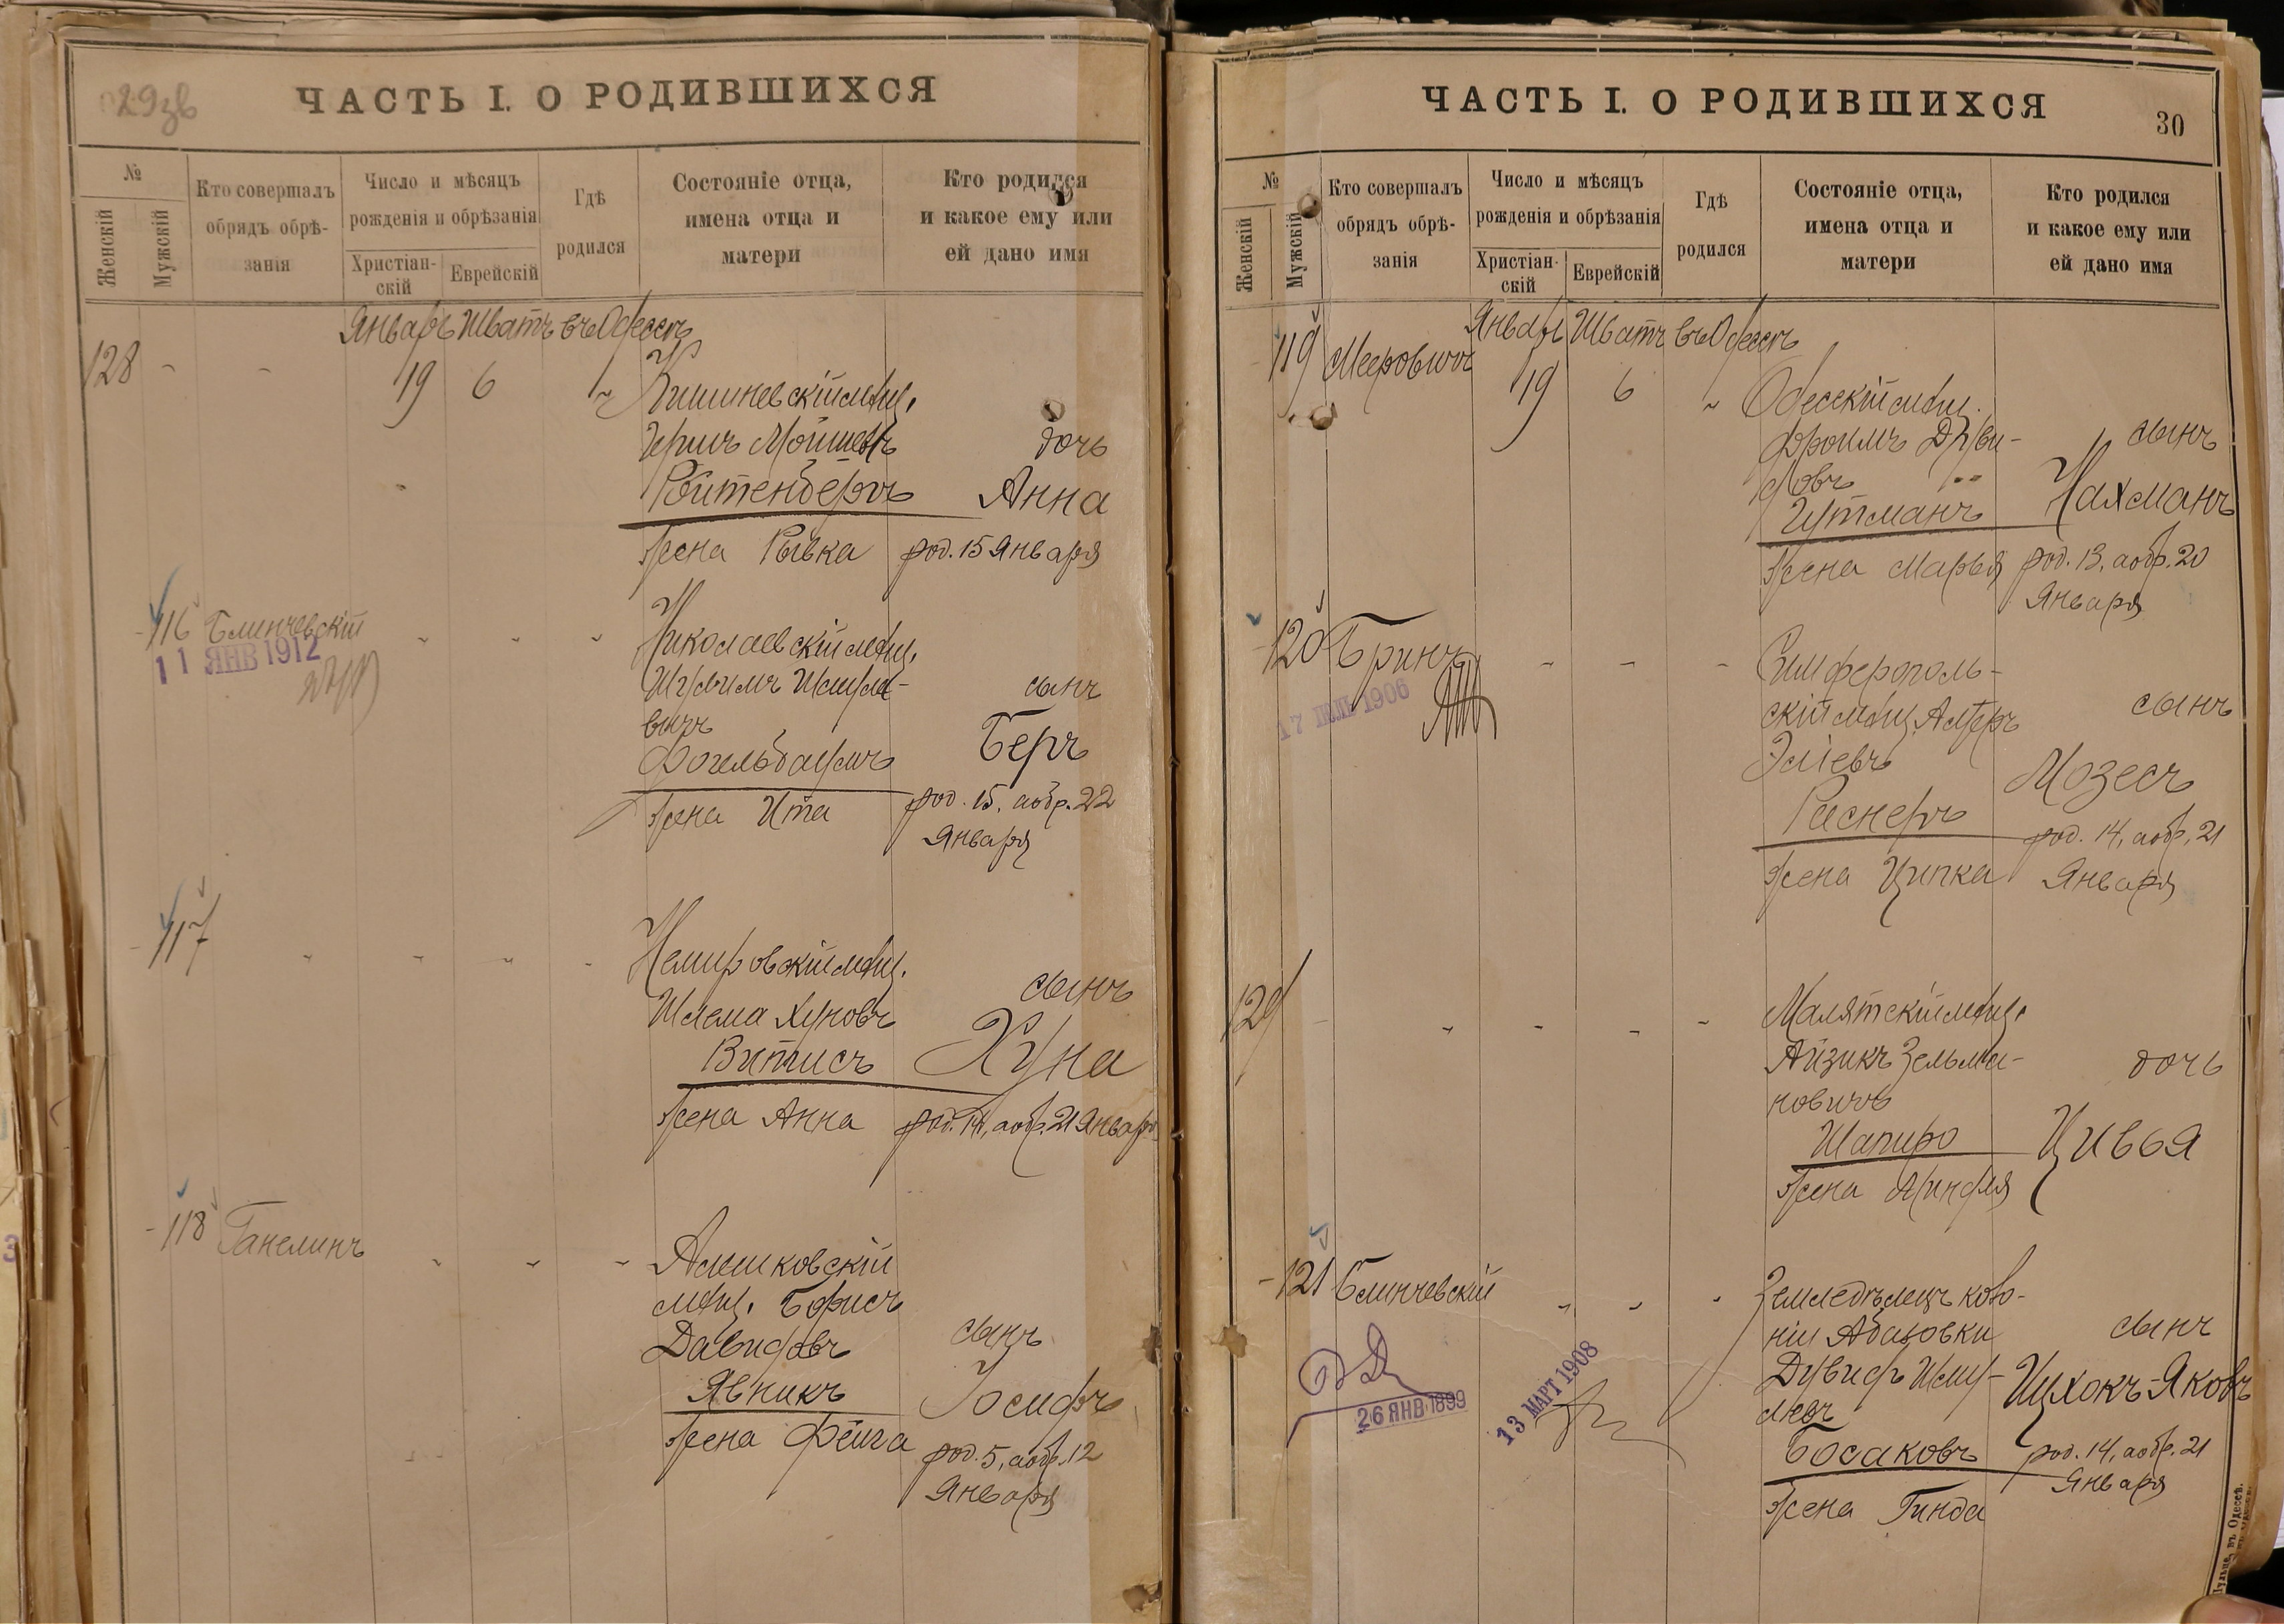 ЧАСТЬ I. О РОДИВШИХСЯ
№
Женскій
Мужскій
Кто совершалъ
обрядъ обрѣ-
занія
Число и мѣсяцъ
рожденія и обрѣзанія
Христіан-
скій
Еврейскій
Гдѣ
родился
Состояніе отца,
имена отца и
матери
Кто родился
и какое ему или
ей дано имя
Январь Шватъ въ Одессѣ
128 - - 19 6 "
Кишиневскій мѣщ.
Гершъ Мошевъ
Ройтенбергъ
жена Рывка
дочь
Анна
род. 15 Января
116 Блинчевскій
11 ЯНВ 1912
Николаевскій мѣщ.
Шулимъ Шмуле-
вичъ
Фогельбаумъ
жена Ита
сынъ
Беръ
род. 15, а обр. 22
Января
117
Немировскій мѣщ.
Шлема Хуновъ
Витисъ
жена Анна
сынъ
Хуна
род. 14, а обр. 21 Января
118 Ганелинъ
Алешковскій
мѣщ. Борисъ
Давидовъ
Явникъ
жена Фейга
сынъ
Іосифъ
род. 5, а обр. 12
Января
ЧАСТЬ I. О РОДИВШИХСЯ
30
№
Женскій
Мужскій
Кто совершалъ
обрядъ обрѣ-
занія
Число и мѣсяцъ
рожденія и обрѣзанія
Христіан-
скій
Еврейскій
Гдѣ
родился
Состояніе отца,
имена отца и
матери
Кто родился
и какое ему или
ей дано имя
Январь Шватъ въ Одессѣ
119 Мееровичъ 19 6 "
Одесскій мѣщ.
Фроимъ Дуви-
довъ
Гутманъ
жена Марья
сынъ
Нахманъ
род. 13, а обр. 20
Января
120 Бринъ
17 ІЮЛЬ 1906
Симферополь-
скій мѣщ.
Эліевъ
жена Ципка
сынъ
Мозесъ
род. 14, а обр. 21
Января
129
Малятскій мѣщ.
Айзикъ Зельма-
новичъ
Шапиро
жена
дочь
Цивья
121 Блинчевскій
26 ЯНВ 1899
13 МАРТ 1908
Земледѣлецъ коло-
ніи Абазовки
Дувидъ Шму-
левъ
Босаковъ
жена Гинда
сынъ
Ицхокъ-Яковъ
род. 14, а обр. 21
Января
въ Одессѣ.